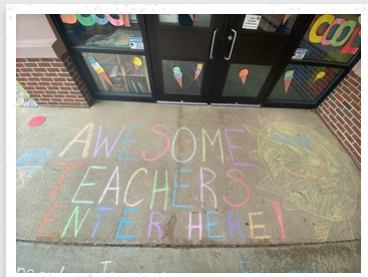 COOL
AWESOME
TEACHERS
ENTER HERE!